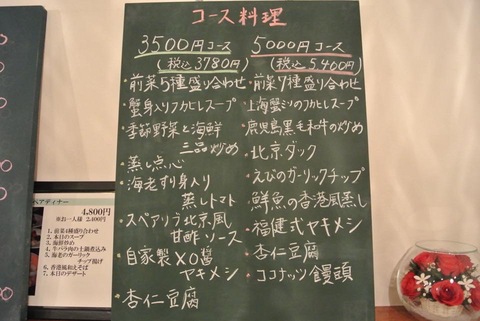 コース料理
3500円コース
(税込3780円)
・前菜5種盛り合わせ
・蟹身入りフカヒレスープ
・季節野菜と海鮮
三品炒め
・蒸し点心
・海老すり身入り
蒸しトマト
・スペアリブ北京風
甘酢ソース
・自家製XO醤
ヤキメシ
・杏仁豆腐
5000円コース
(税込5,400円)
・前菜7種盛り合わせ
・上海蟹ミソのフカヒレスープ
・鹿児島黒毛和牛の炒め
・北京ダック
・えびのガーリックチップ
・鮮魚の香港風蒸し
・福建式ヤキメシ
・杏仁豆腐
・ココナッツ饅頭
ペアディナー
4,800円
※お一人様 2,400円
1. 前菜4種盛り合わせ
2. 本日のスープ
3. 海鮮炒め
4. 牛バラ肉の土鍋煮込み
5. 海老のガーリック
チップ揚げ
6. 香港風和えそば
7. 本日のデザート